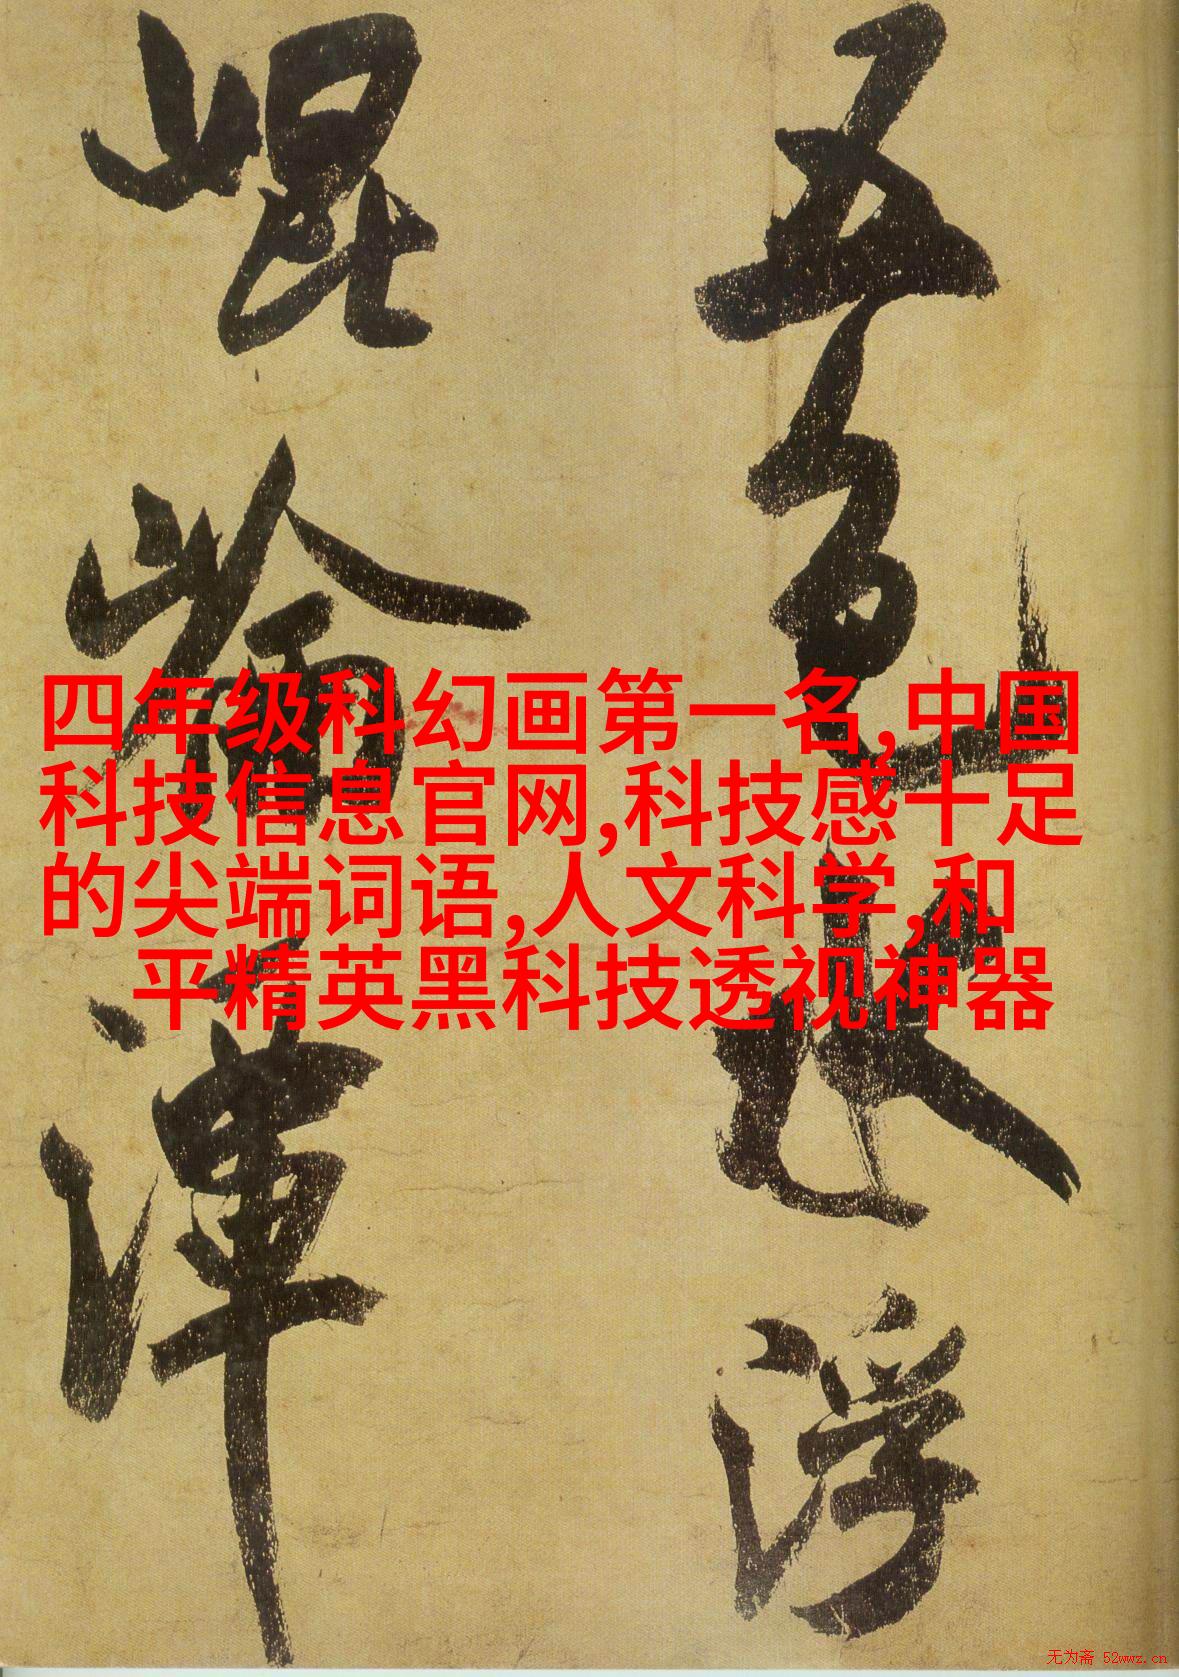 五色水浮
崐崘潭
四年级科幻画第一名,中国
科技信息官网,科技感十足
的尖端词语,人文科学,和
平精英黑科技透视神器
无为斋 52wwz.cn